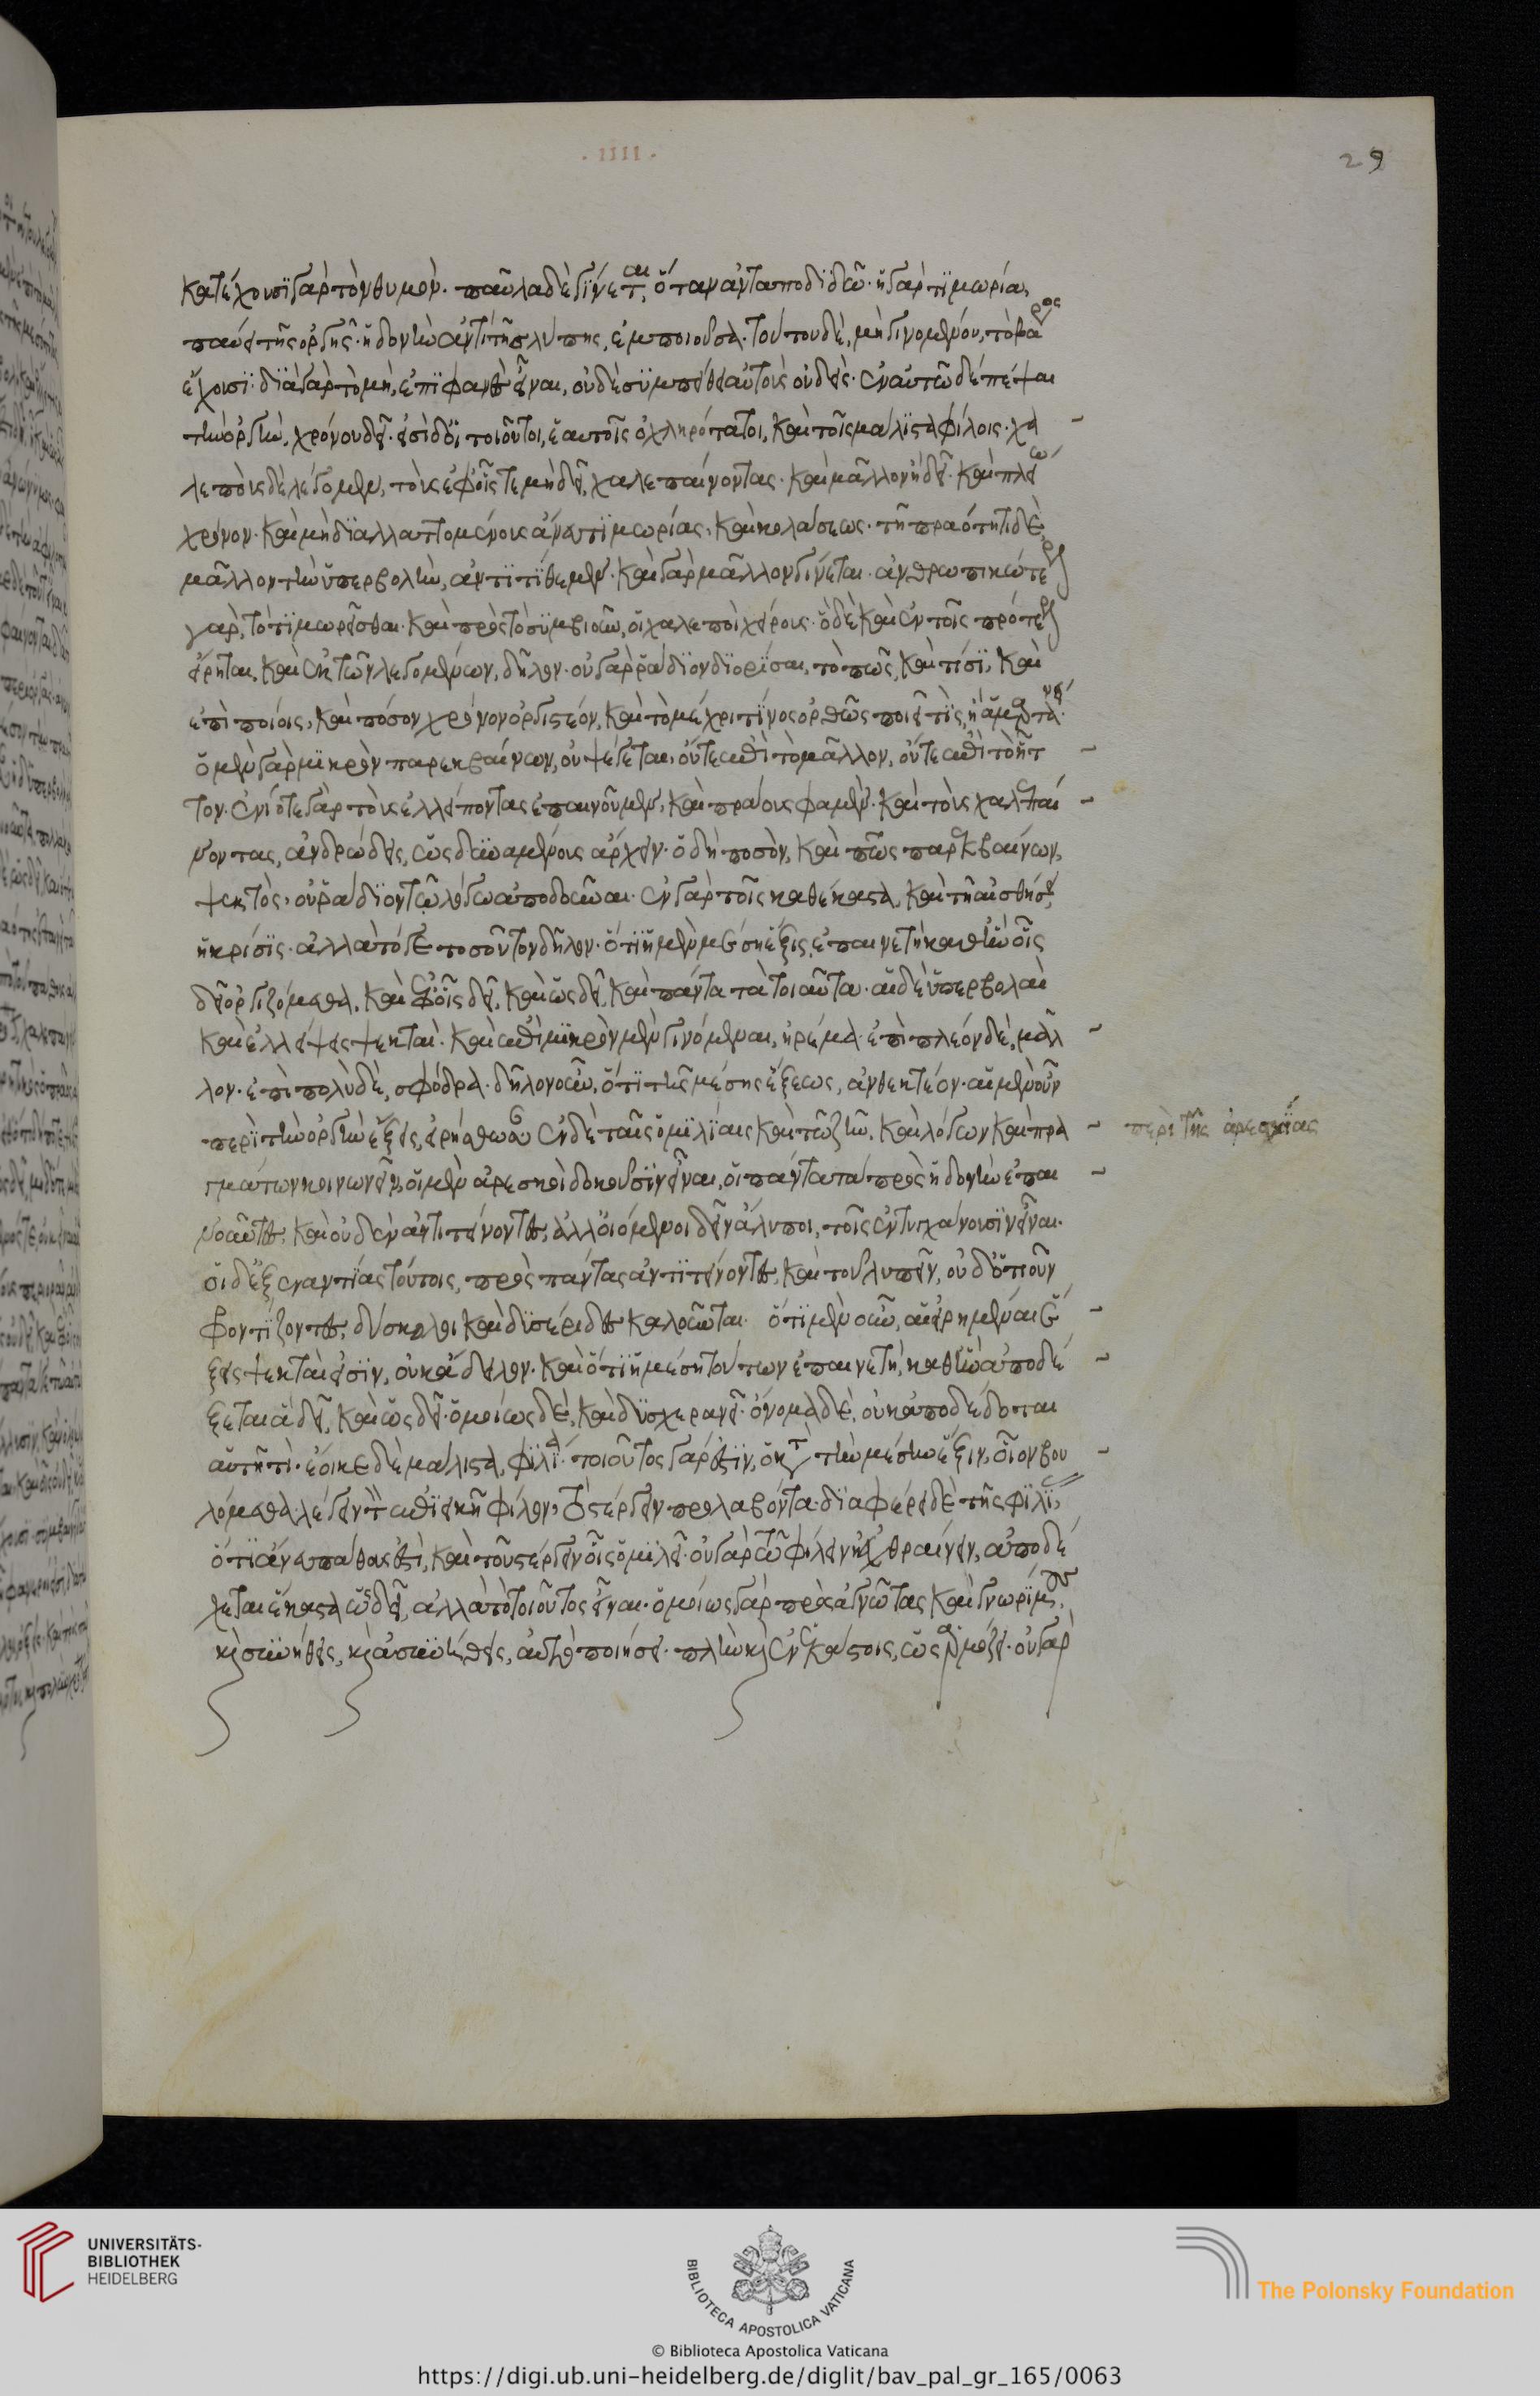 · IIII ·
29
κατέχουσι γὰρ τὸν θυμόν. παῦλα δὲ γίνεται, ὅταν ἀνταποδιδῶ· ἡ γὰρ τιμωρία,
παύει τῆς ὀργῆς· ἡδονὴν ἀντὶ τῆς λύπης, ἐμποιοῦσα. τούτου δὲ, μὴ γινομένου, τὸ βάρος
ἔχουσι· διὰ γὰρ τὸ μὴ, ἐπιφανὲς εἶναι, οὐδὲ συμπείθει αὐτοὺς οὐδείς· ἐν αὑτῶ δὲ πέψαι
τὴν ὀργὴν, χρόνου δεῖ· εἰσὶ δ' οἱ τοιοῦτοι, ἑαυτοῖς ὀχληρότατοι, καὶ τοῖς μάλιστα φίλοις· χα
λεποὺς δὲ λέγομεν, τοὺς ἐφ' οἷς τε μὴ δεῖ, χαλεπαίνοντας. καὶ μᾶλλον ἢ δεῖ· καὶ πλείω
χρόνον. καὶ μὴ διαλλαττομένους ἄνευ τιμωρίας, καὶ κολάσεως· τῆ πραότητι δὲ,
μᾶλλον τὴν ὑπερβολὴν, ἀντιτίθεμεν. καὶ γὰρ μᾶλλον γίνεται. ἀνθρωπικώτερον
γὰρ, τὸ τιμωρεῖσθαι. καὶ πρὸς τὸ συμβιοῦν, οἱ χαλεποὶ χείρους· ὃ δὲ καὶ ἐν τοῖς πρότερον
εἴρηται, καὶ ἐκ τῶν λεγομένων, δῆλον. οὐ γὰρ ῥάδιον διορίσαι, τὸ πῶς, καὶ τίσι, καὶ
ἐπὶ ποίοις, καὶ πόσον χρόνον ὀργιστέον, καὶ τὸ μέχρι τίνος ὀρθῶς ποιεῖ τίς, ἢ ἁμαρτάνει·
ὁ μὲν γὰρ μικρὸν παρεκβαίνων, οὐ ψέγεται, οὔτε ἐπὶ τὸ μᾶλλον, οὔτε ἐπὶ τὸ ἧτ
τον. ἐνίοτε γὰρ τοὺς ἐλλείποντας ἐπαινοῦμεν, καὶ πράους φαμὲν· καὶ τοὺς χαλεπαί
νοντας, ἀνδρώδεις, ὡς δυναμένους ἄρχειν· ὁ δὴ ποσὸν, καὶ πῶς παρεκβαίνων,
ψεκτὸς, οὐ ῥάδιον τῶ λόγω ἀποδοῦναι. ἐν γὰρ τοῖς καθέκαστα, καὶ τῆ αἰσθήσει,
ἡ κρίσις. ἀλλὰ τό γε τοσοῦτον δῆλον· ὅτι ἡ μὲν μέση ἕξις, ἐπαινετὴ, καθ' ἣν οἷς
δεῖ ὀργιζόμεθα, καὶ ἐφ' οἷς δεῖ, καὶ ὡς δεῖ, καὶ πάντα τὰ τοιαῦτα· αἱ δὲ ὑπερβολαὶ
καὶ ἐλλείψεις ψεκταὶ. καὶ ἐπὶ μικρὸν μὲν γινόμεναι, ἠρέμα· ἐπὶ πλέον δὲ, μᾶλ
λον· ἐπὶ πολὺ δὲ, σφόδρα. δῆλον οὖν, ὅτι τῆς μέσης ἕξεως, ἀνθεκτέον. αἱ μὲν οὖν
περὶ τὴν ὀργὴν ἕξεις, εἰρήσθωσαν ἐν δὲ ταῖς ὁμιλίαις καὶ τῶ ζῆν, καὶ λόγων καὶ πρα
περὶ τῆς ἀρεσκείας
γμάτων κοινωνεῖν, οἱ μὲν ἄρεσκοι δοκοῦσιν εἶναι, οἱ πάντα τὰ πρὸς ἡδονὴν ἐπαι
νοῦντες, καὶ οὐδὲν ἀντιτείνοντες, ἀλλ' οἰόμενοι δεῖν ἄλυποι, τοῖς ἐντυγχάνουσιν εἶναι.
οἱ δ' ἐξ ἐναντίας τούτοις, πρὸς πάντας ἀντιτείνοντες, καὶ τοῦ λυπεῖν, οὐδ' ὁτιοῦν
φροντίζοντες, δύσκολοι καὶ δυσέριδες καλοῦνται. ὅτι μὲν οὖν, αἱ εἰρημέναι ἕ
ξεις ψεκταὶ εἰσὶν, οὐκ ἄδηλον. καὶ ὅτι ἡ μέση τούτων ἐπαινετὴ, καθ' ἣν ἀποδέ
ξεται ἃ δεῖ, καὶ ὡς δεῖ. ὁμοίως δὲ, καὶ δυσχερανεῖ. ὄνομα δὲ, οὐκ ἀποδέδοται
αὐτῆ τὶ. ἔοικε δὲ μάλιστα, φιλία. τοιοῦτος γάρ ἐστιν, ὁ κατὰ τὴν μέσην ἕξιν, οἷον βου
λόμεθα λέγειν τὸν ἐπιεικῆ φίλον, τὸ στέργειν προσλαβόντα. διαφέρει δὲ τῆς φιλίας,
ὅτι ἄνευ πάθους ἐστὶ, καὶ τοῦ στέργειν οἷς ὁμιλεῖ. οὐ γὰρ τῶ φιλεῖν ἢ ἐχθραίνειν, ἀποδέ
χεται ἕκαστα ὡς δεῖ, ἀλλὰ τῶ τοιοῦτος εἶναι. ὁμοίως γὰρ πρὸς ἀγνῶτας καὶ γνωρίμους,
καὶ συνήθεις, καὶ ἀσυνήθεις, αὐτὸ ποιήσει. πλὴν καὶ ἐν ἑκάστοις, ὡς ἁρμόζει. οὐ γὰρ
UNIVERSITÄTS-
BIBLIOTHEK
HEIDELBERG
BIBLIOTECA APOSTOLICA VATICANA
The Polonsky Foundation
© Biblioteca Apostolica Vaticana
https://digi.ub.uni-heidelberg.de/diglit/bav_pal_gr_165/0063